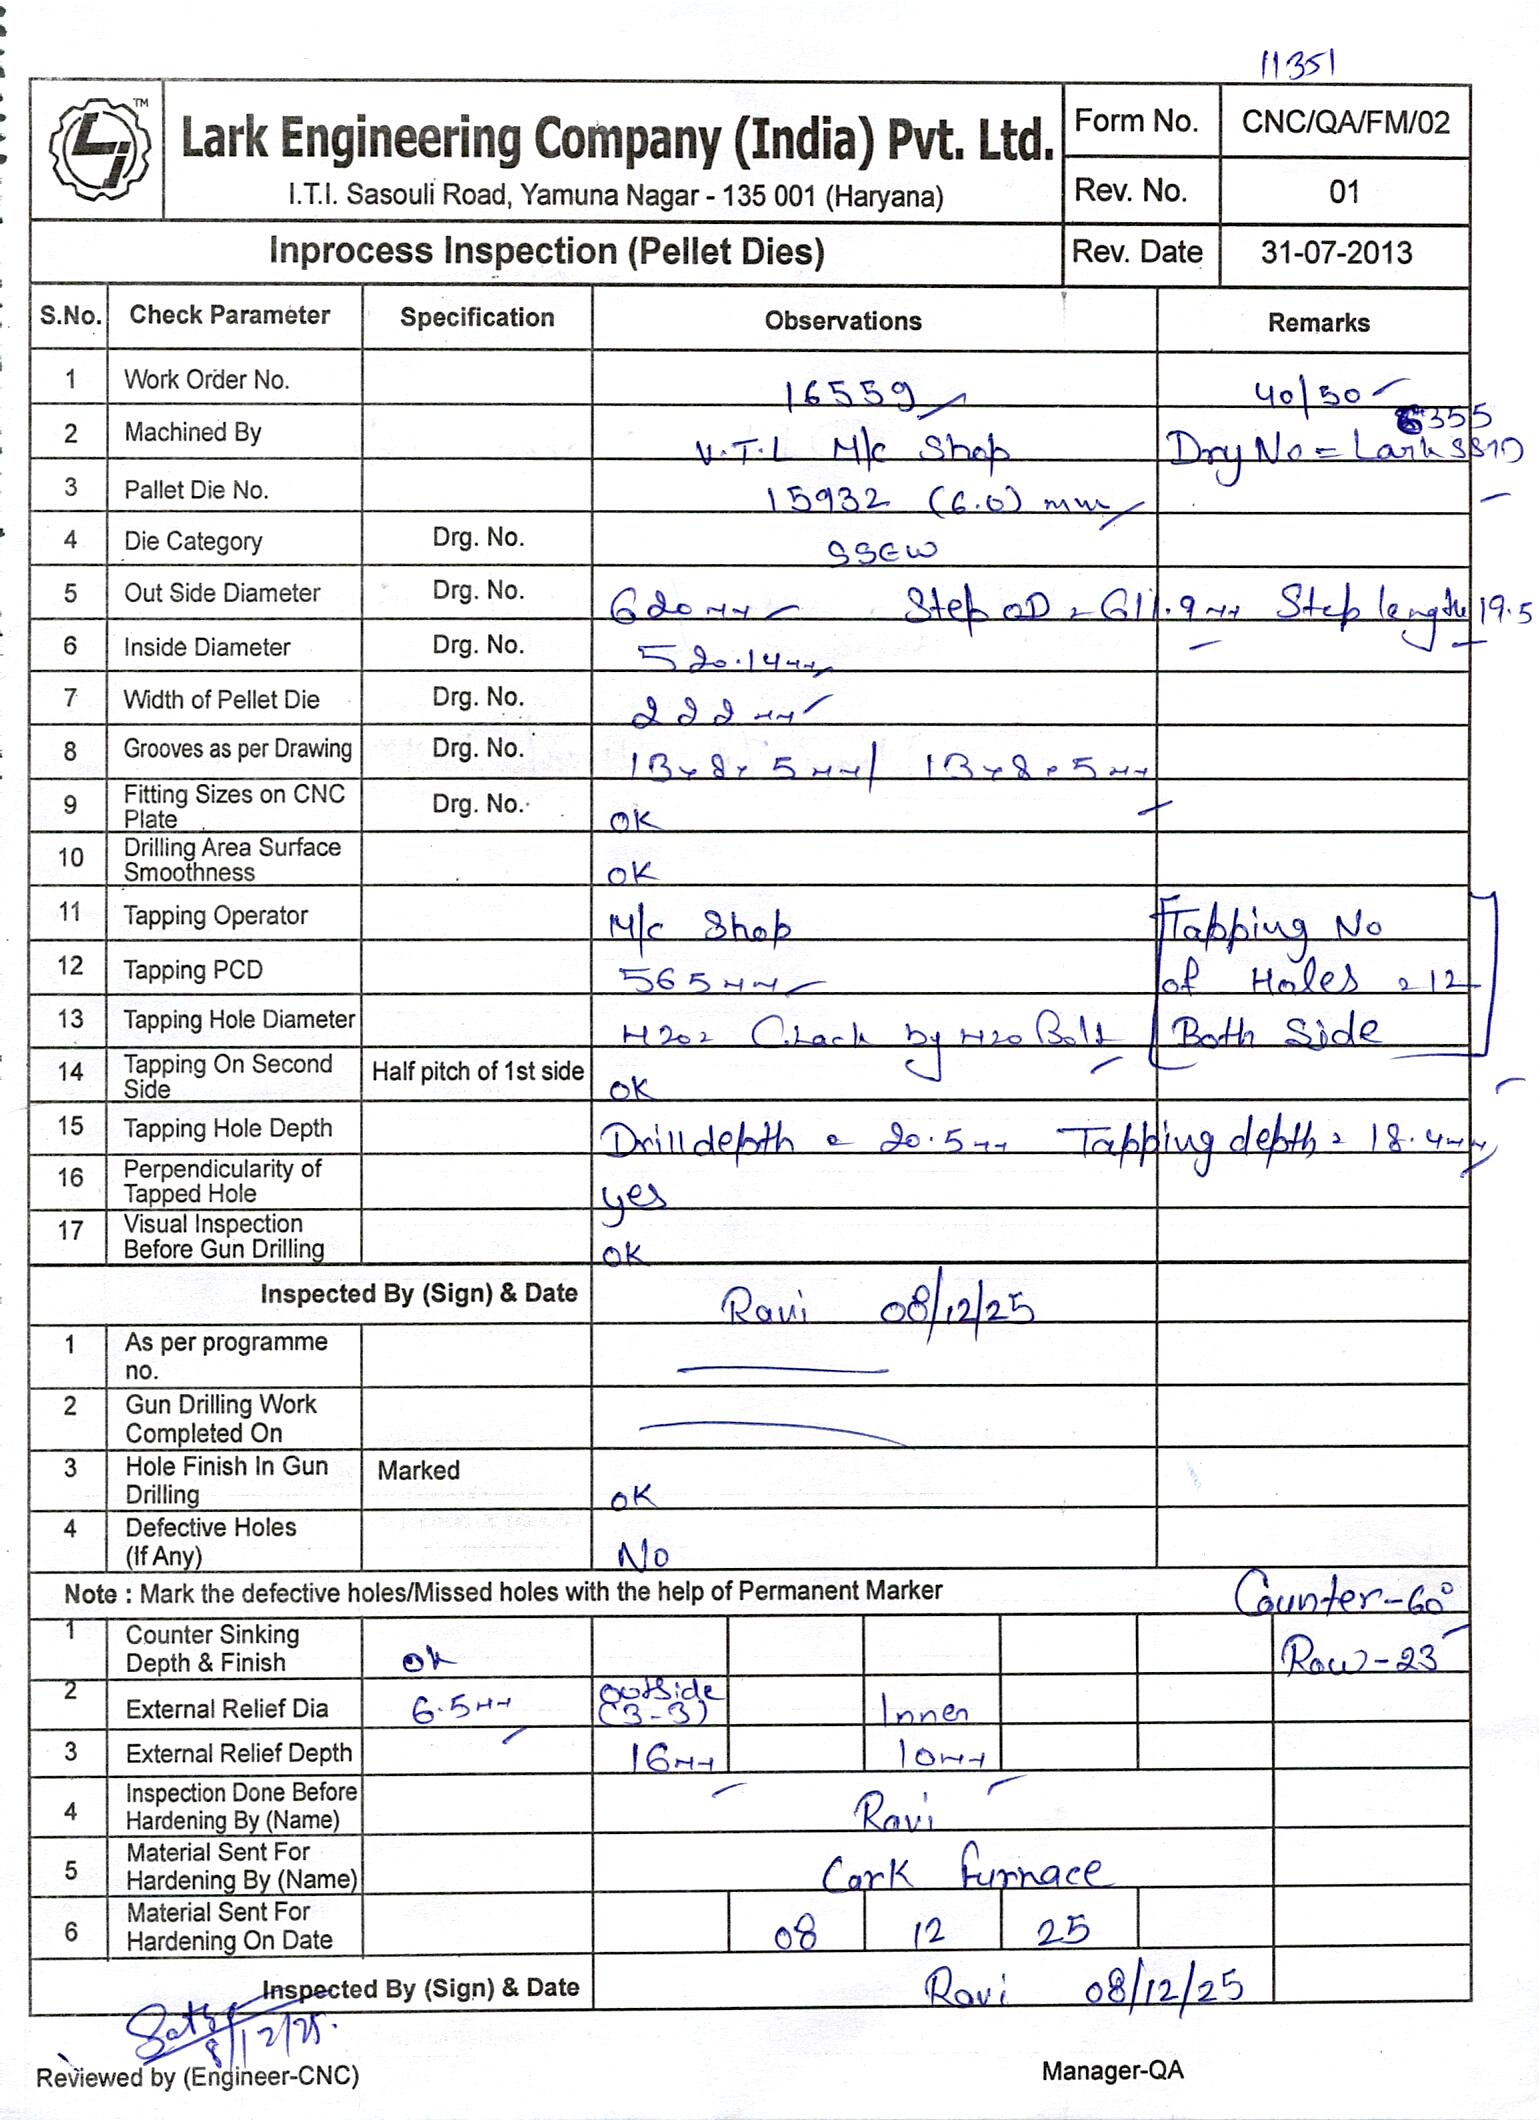 11351
TM
Lark Engineering Company (India) Pvt. Ltd.
I.T.I. Sasouli Road, Yamuna Nagar - 135 001 (Haryana)
Form No. CNC/QA/FM/02
Rev. No. 01
Inprocess Inspection (Pellet Dies) Rev. Date 31-07-2013
S.No. Check Parameter Specification Observations Remarks
1 Work Order No. 16559 40/50
2 Machined By V.T.L M/c Shop Dry No = Lark
3 Pallet Die No. 15932 (6.0) mm
4 Die Category Drg. No. SSEW
5 Out Side Diameter Drg. No. 620 mm Step OD = 611.9 mm Step length 19.5
6 Inside Diameter Drg. No. 520.14 mm
7 Width of Pellet Die Drg. No. 222 mm
8 Grooves as per Drawing Drg. No. 13x8x5mm/ 13x8x5mm
9 Fitting Sizes on CNC Plate Drg. No. OK
10 Drilling Area Surface Smoothness OK
11 Tapping Operator M/c Shop Tapping No
12 Tapping PCD 565mm of Holes = 12
13 Tapping Hole Diameter M20= Chack by M20 Bolt Both Side
14 Tapping On Second Side Half pitch of 1st side OK
15 Tapping Hole Depth Drill depth = 20.5mm Tapping depth = 18.4mm
16 Perpendicularity of Tapped Hole yes
17 Visual Inspection Before Gun Drilling OK
Inspected By (Sign) & Date Ravi 08/12/25
1 As per programme no.
2 Gun Drilling Work Completed On
3 Hole Finish In Gun Drilling Marked OK
4 Defective Holes (If Any) No
Note : Mark the defective holes/Missed holes with the help of Permanent Marker Counter-60°
1 Counter Sinking Depth & Finish ok Row-23
2 External Relief Dia 6.5mm outside (3-3) Inner
3 External Relief Depth 16mm 10mm
4 Inspection Done Before Hardening By (Name) Ravi
5 Material Sent For Hardening By (Name) Cark furnace
6 Material Sent For Hardening On Date 08 12 25
Inspected By (Sign) & Date Ravi 08/12/25
8/12/25.
Reviewed by (Engineer-CNC) Manager-QA